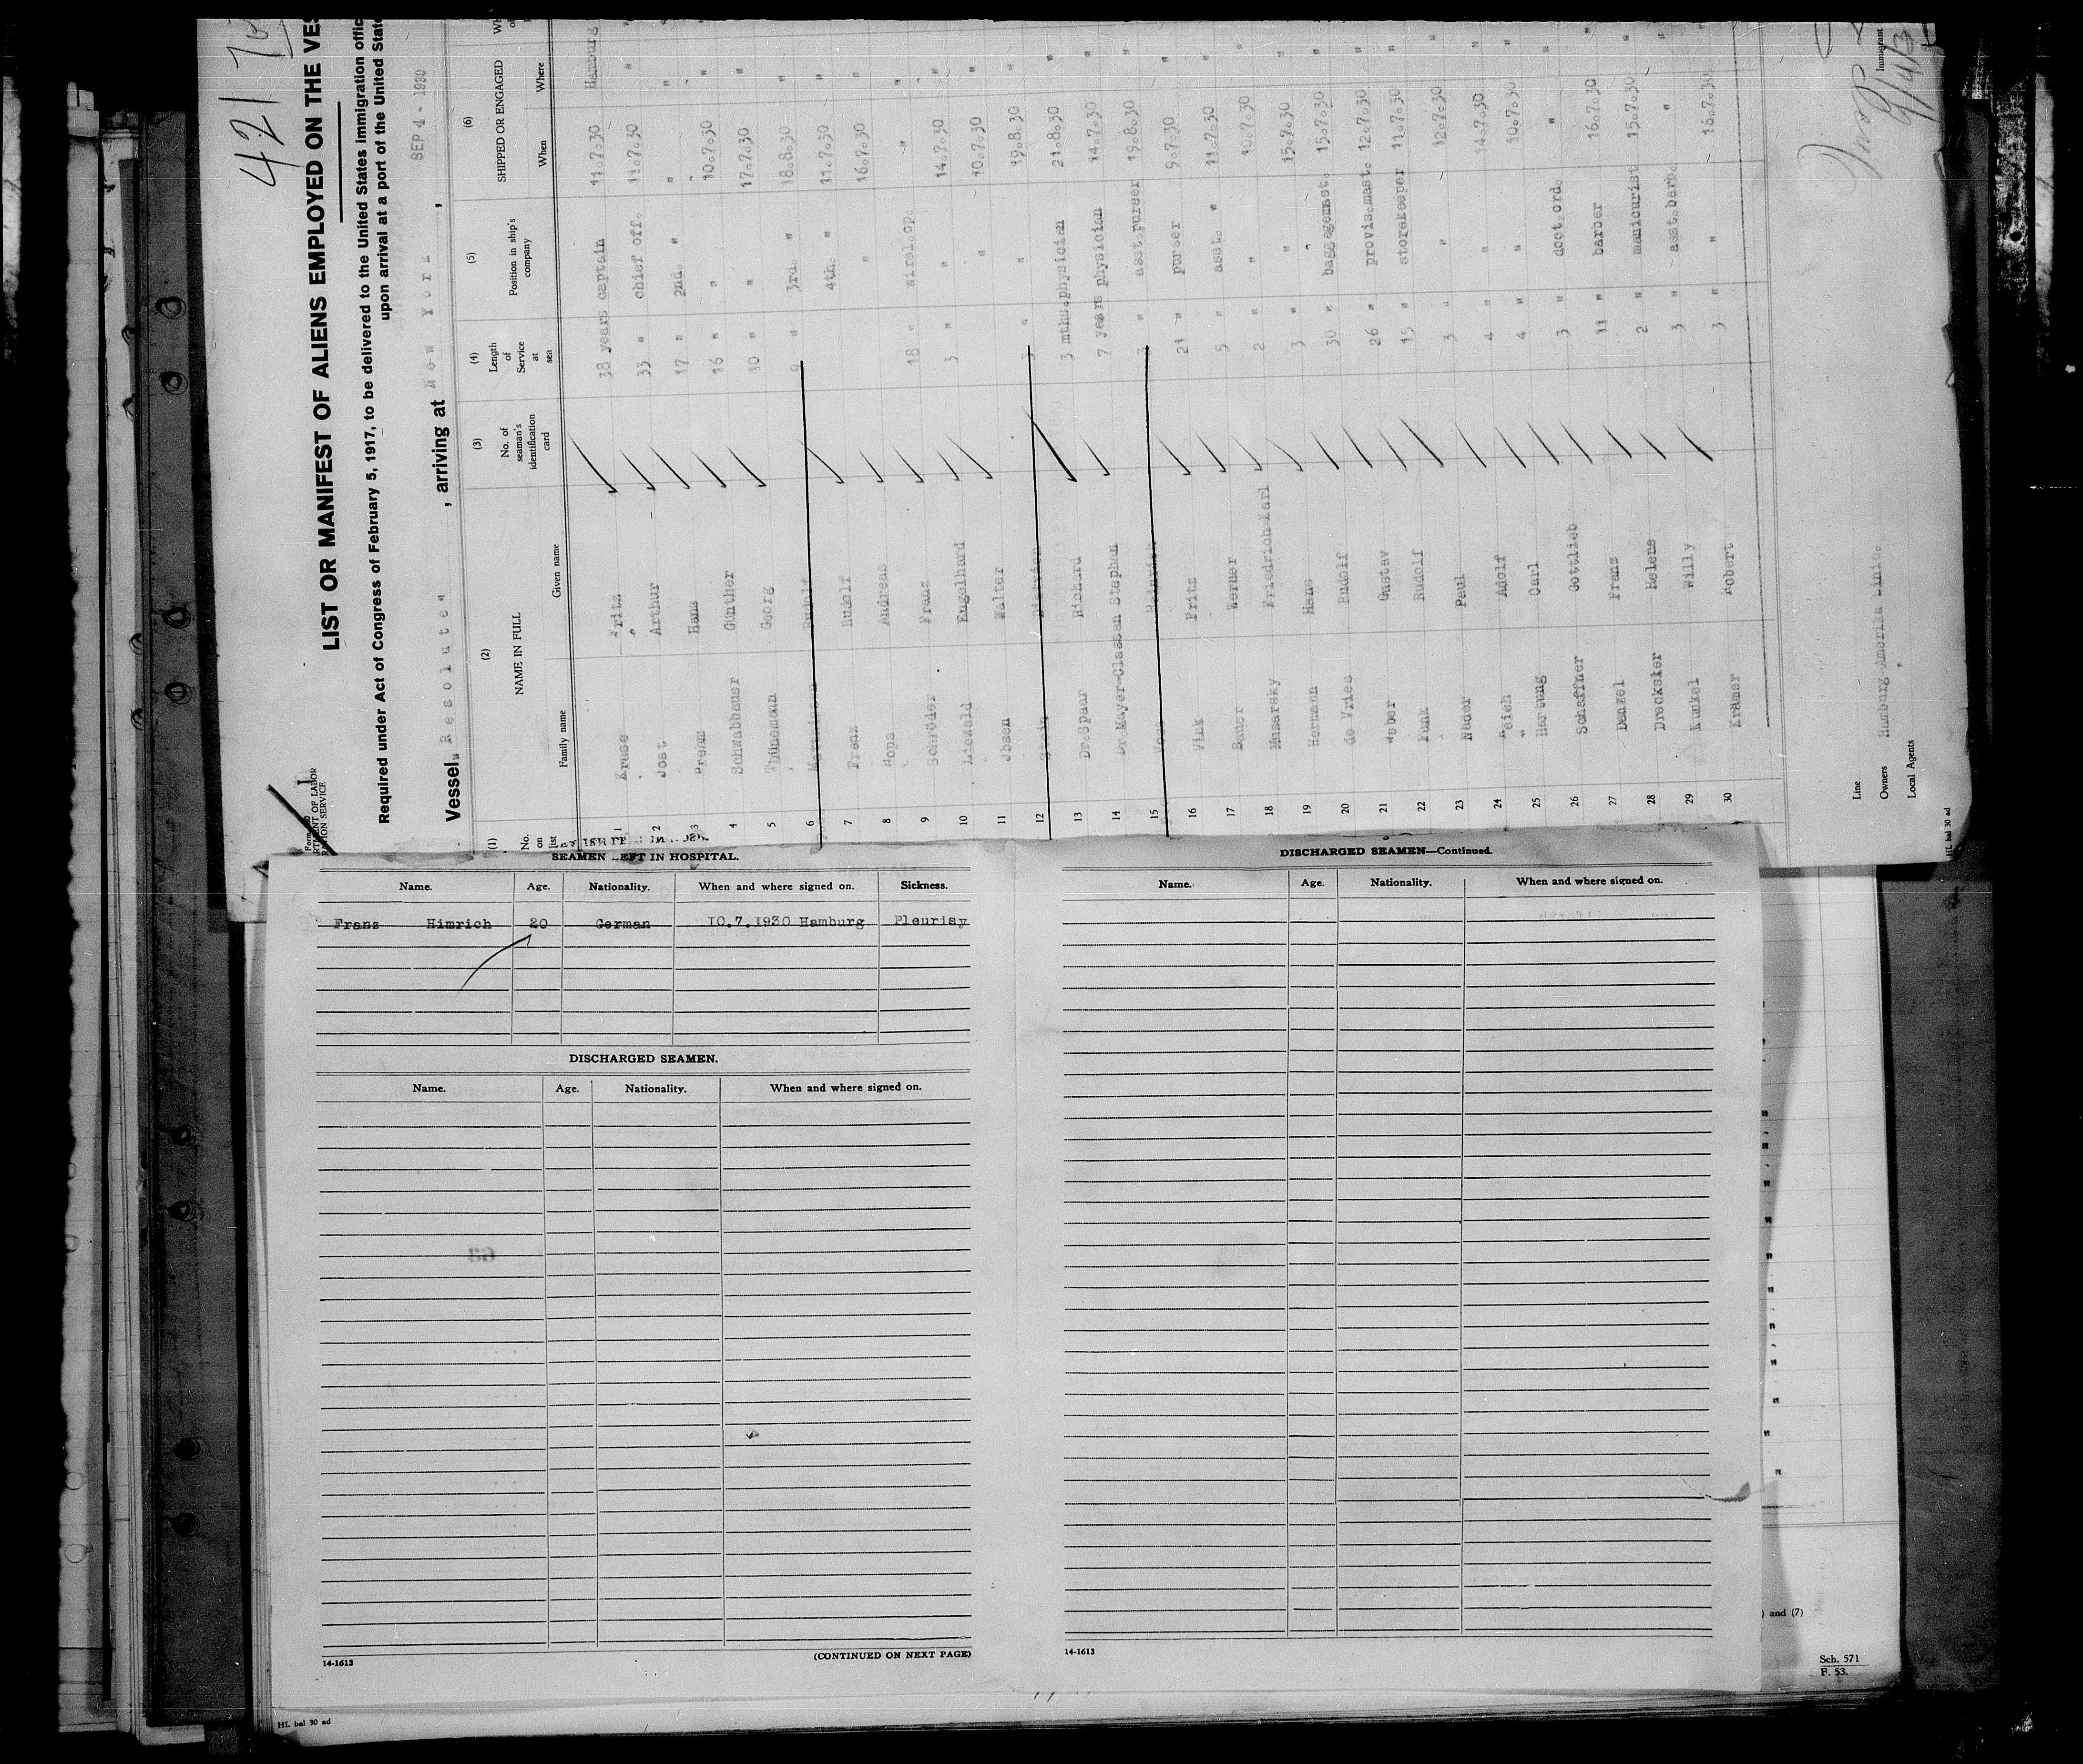 421
LIST OR MANIFEST OF ALIENS EMPLOYED ON THE VES
Required under Act of Congress of February 5, 1917, to be delivered to the United States immigration offic
upon arrival at a port of the United State
Vessel "Resolute" , arriving at New York , SEP 4 - 1930
(1) (2) (3) (4) (5) (6)
No. on list NAME IN FULL No. of seaman's identification card Length of Service at sea Position in ship's company SHIPPED OR ENGAGED
Family name Given name When Where
1 Kruse Fritz 38 years captain 11.7.30 Hamburg
2 Jost Arthur 33 " chief off. 11.7.30 "
3 Prehm Hans 17 " 2nd. " " "
4 Schwabbauer Günther 16 " " 10.7.30 "
5 Thünemann Georg 10 " " 17.7.30 "
6 Rudolf 9 " 3rd. " 18.8.30 "
7 Frenz Rudolf 4th. " 11.7.30 "
8 Hops Andreas " 16.7.30 "
9 Schröder Franz 18 " wirel.op. " "
10 Liewald Engelhard 3 " " 14.7.30 "
11 Jbsen Walter " 10.7.30 "
12 Dietrich " " 19.8.30 "
13 Dr.Spaar Richard 3 mths.physician 21.8.30 "
14 Dr.Mayer-Classen Stephen 7 years physician 14.7.30 "
15 Heinrich " asst.purser 19.8.30 "
16 Vink Fritz 21 " purser 9.7.30 "
17 Bauer Werner 5 " asst. " 11.7.30 "
18 Musarsky Friedrich Karl 2 " " 10.7.30 "
19 Hermann Hans 3 " " 15.7.30 "
20 de Vries Rudolf 30 " baggagemast. 15.7.30 "
21 Weber Gustav 26 " provis.mast. 12.7.30 "
22 Funk Rudolf 15 " storekeeper 11.7.30 "
23 Nauer Paul 3 " " 12.7.30 "
24 Reich Adolf 4 " " 14.7.30 "
25 Hartung Carl 4 " " 10.7.30 "
26 Schaffner Gottlieb 3 " doct.ord. " "
27 Denzel Franz 11 " barber 16.7.30 "
28 Drecksler Helene 2 " manicurist 15.7.30 "
29 Kunkel Willy 3 " asst.barb. " "
30 Krämer Robert 3 " " 16.7.30 "
Line
Owners Hamburg-Amerika Linie.
Local Agents
Immigrant
HL bal 30 ad
SEAMEN LEFT IN HOSPITAL.
Name. Age. Nationality. When and where signed on. Sickness.
Franz Himrich 20 German 10.7.1930 Hamburg Pleurisy
DISCHARGED SEAMEN.
Name. Age. Nationality. When and where signed on.
14-1613
(CONTINUED ON NEXT PAGE)
DISCHARGED SEAMEN—Continued.
Name. Age. Nationality. When and where signed on.
14-1613
) and (7)
Sch. 571
F. 53.
HL bal 30 ad